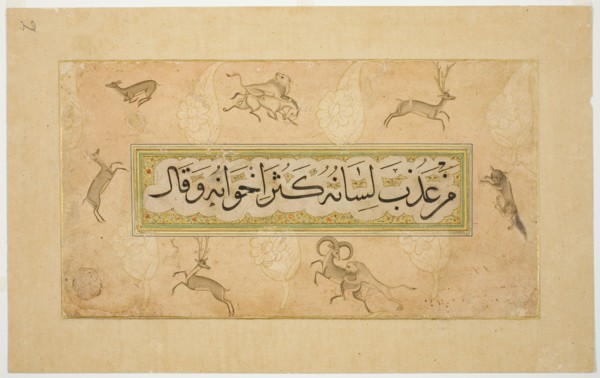 من عذب لسانه كثر اخوانه وقال